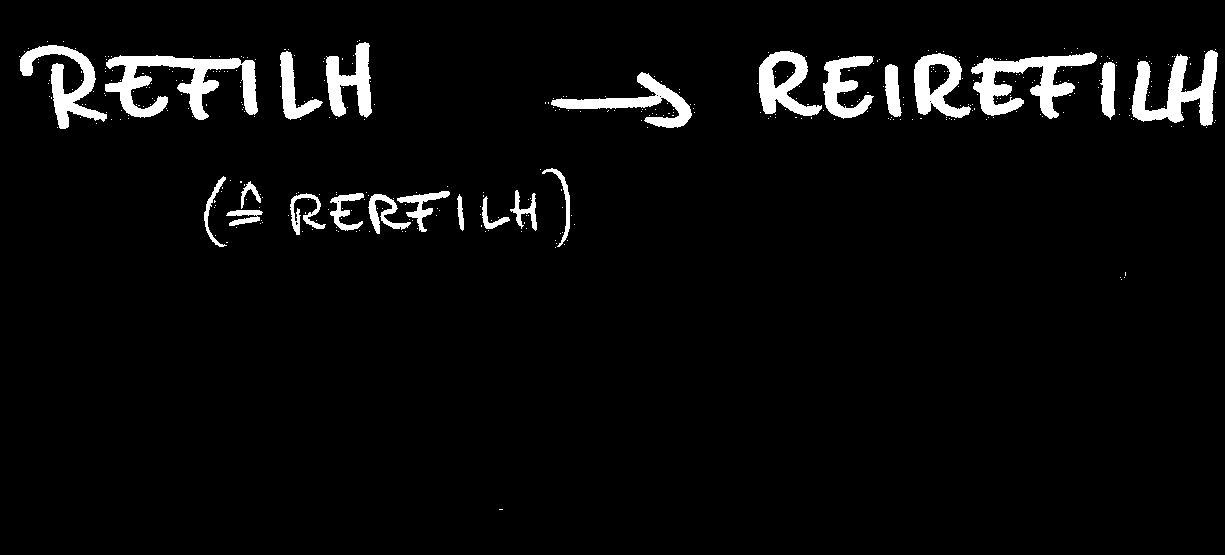 REFILH → REIREFILH
(≙ RERFILH)